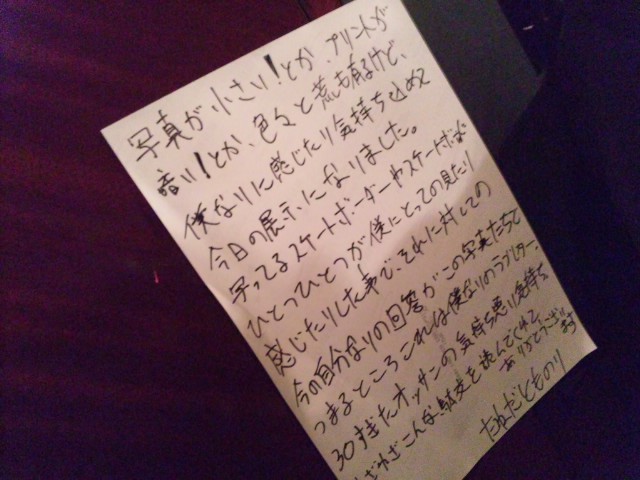 写真が小さい!とか、プリントが
暗い!とか、色々と荒も有るけど、
僕なりに感じたり気持ち込めて
今日の展示になりました。
写ってるスケートボーダーやスケートボードが
ひとつひとつが僕にとっての見たり
感じたりした事で、それに対しての
今の自分なりの回答がこの写真たちで
つまるところこれは僕なりのラブレター。
30すぎたオッサンの気持ち悪い気持ち
わざわざこんな駄文を読んでくれて
ありがとうございます
たねだとものり